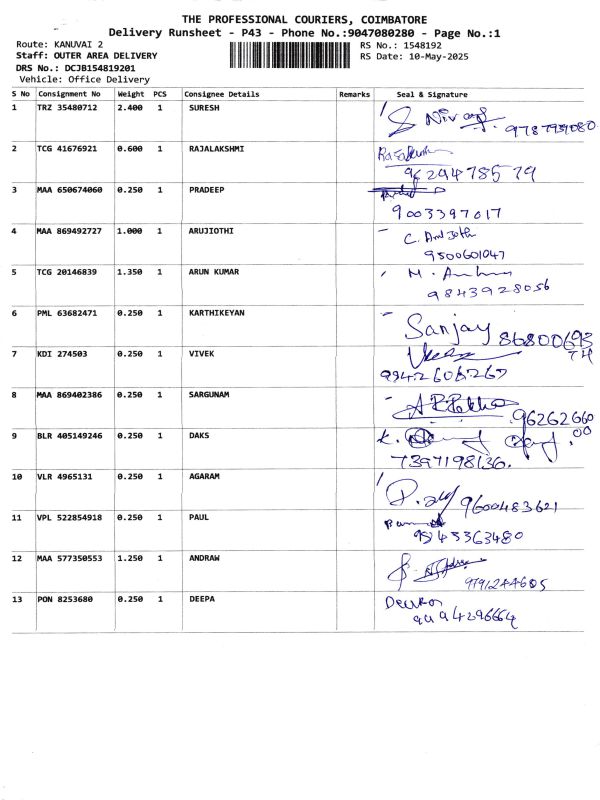 THE PROFESSIONAL COURIERS, COIMBATORE
Delivery Runsheet - P43 - Phone No.:9047080280 - Page No.:1
Route: KANUVAI 2
RS No.: 1548192
Staff: OUTER AREA DELIVERY
RS Date: 10-May-2025
DRS No.: DCJB154819201
Vehicle: Office Delivery
S No Consignment No Weight PCS Consignee Details Remarks Seal & Signature
1 TRZ 35480712 2.400 1 SURESH
2 TCG 41676921 0.600 1 RAJALAKSHMI
9629478579
3 MAA 650674060 0.250 1 PRADEEP
9003397017
4 MAA 869492727 1.000 1 ARUJIOTHI
9500601047
5 TCG 20146839 1.350 1 ARUN KUMAR
9843928056
6 PML 63682471 0.250 1 KARTHIKEYAN
Sanjay 86800693
74
7 KDI 274503 0.250 1 VIVEK
8 MAA 869402386 0.250 1 SARGUNAM
96262660
00
9 BLR 405149246 0.250 1 DAKS
7397198136.
10 VLR 4965131 0.250 1 AGARAM
9600483621
11 VPL 522854918 0.250 1 PAUL
12 MAA 577350553 1.250 1 ANDRAW
9791244605
13 PON 8253680 0.250 1 DEEPA
9994296664